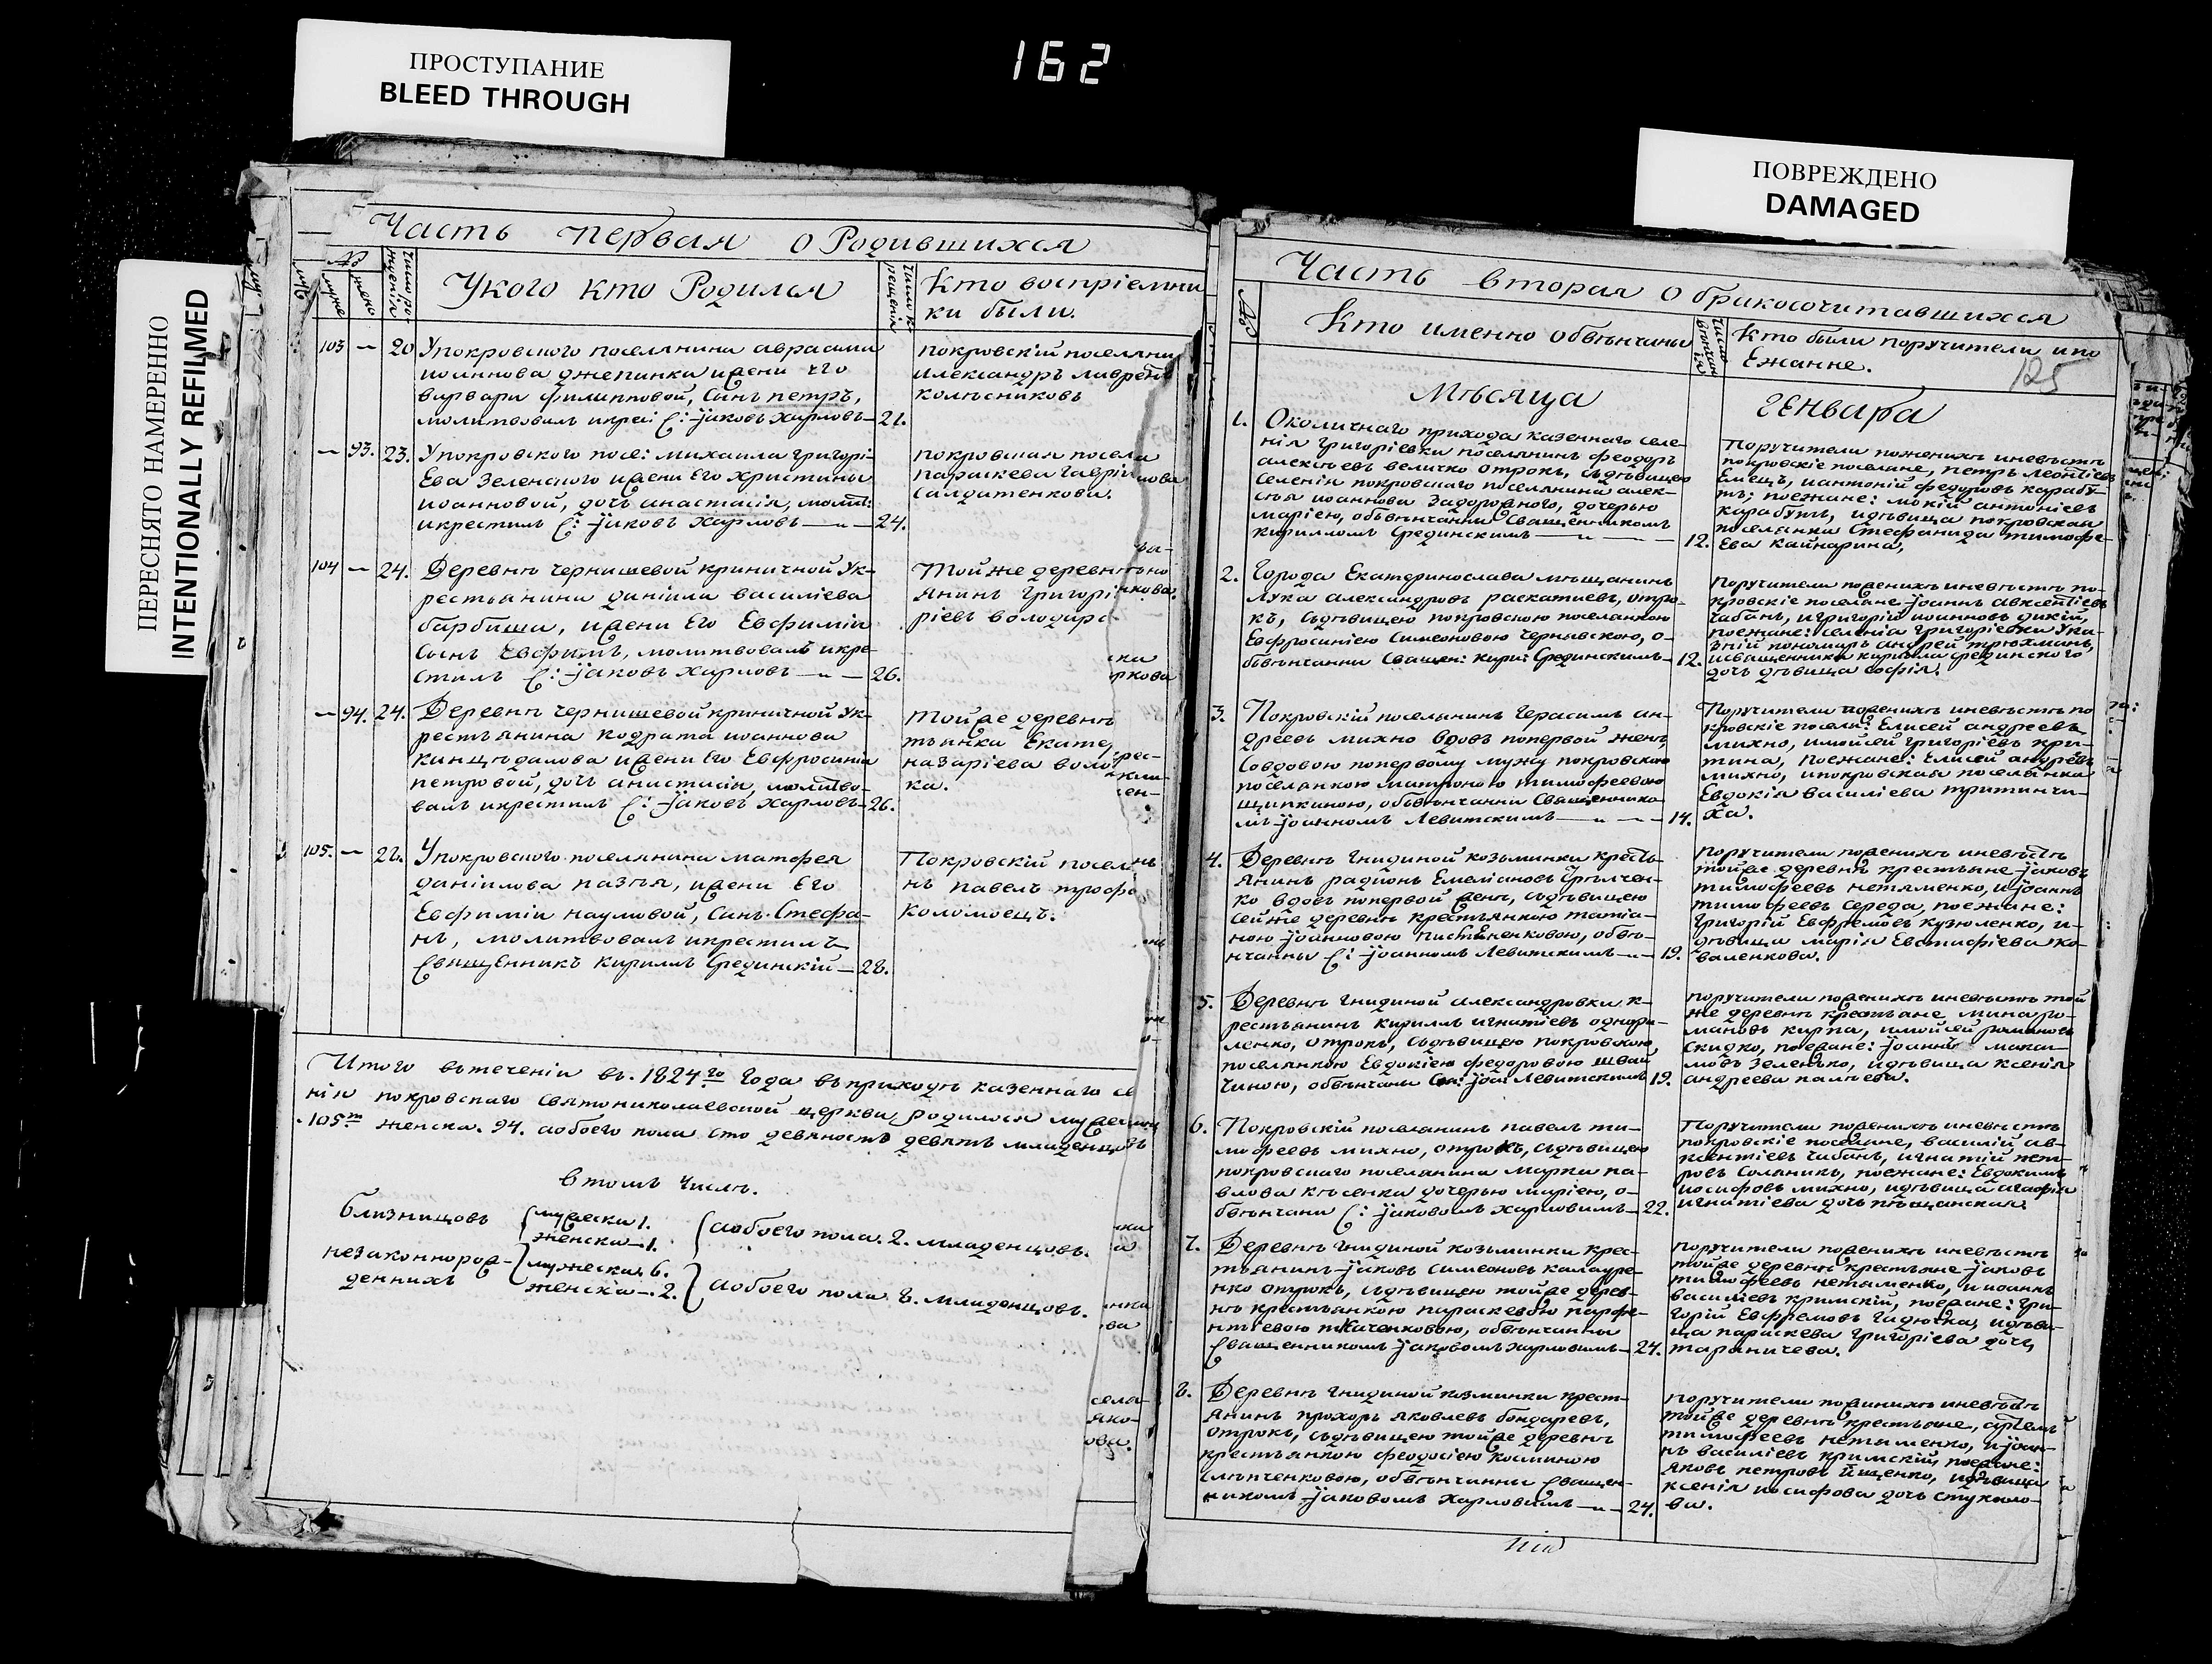 ПРОСТУПАНИЕ
BLEED THROUGH
162
ПОВРЕЖДЕНО
DAMAGED
ПЕРЕСНЯТО НАМЕРЕННО
INTENTIONALLY REFILMED
Часть первая о Родившихся
Укого кто Родился
Кто воспріемни
ки были.
103 — 20 Упокровского поселянина авраама
иоаннова джепинка ижени его
варвари филипповой, Сынъ петръ,
молитвовалъ икрес: С: Іаковъ Харловъ — 21.
покровскій поселяни
александръ лаврент
колѣсниковъ
— 93. 23. Упокровского посе: михаила григорі-
Ева Зеленского ижени Его Христины
иоанновой, дочь анастасія, молит:
икрестилъ С: Іаковъ Харловъ — 24.
покровская посел
параскева гавріи
салдатенкова.
104 — 24. Деревнѣ чернишевой криничной Ук-
рестьянина даніила василіева
барбаши, ижени Его Евфиміи
Сынъ Евфимъ, молитвовалъ икре
стилъ С: Іаковъ Харловъ — 26.
Тойже деревнѣ
янинъ григорі
ріевъ володарс
— 94. 24. Деревнѣ чернишевой криничной Ук-
рестьянина кодрата иоаннова
ижени Его Евфросиніи
петровой, дочь анастасія, молитво-
валъ икрестилъ С: Іаковъ Харловъ — 26.
тойже деревнѣ
тьянка Екате
назаріева воло
ка.
105. — 28. Упокровского поселянина матфея
даніилова пазъя, ижени Его
Евфиміи наумовой, Синъ Стефа-
нъ, молитвовалъ икрестилъ
Священникъ Кириллъ Срединскій — 28.
Покровскій посел
нъ павелъ трофи
Коломоецъ.
Итого втеченіи въ. 1824го года въприходѣ казеннаго се
нія покровского Святониколаевской церкви родилося мужеска
.105ть женска. 94. аобоего пола сто девяность девять младенцовъ
Втомъ числѣ.
близнецовъ мужеска 1. женска — 1. аобоего пола. 2. младенцовъ.
незаконнорож-
деннихъ мужеска. 6. женска — 2. аобоего пола 8. младенцовъ.
Часть вторая о бракосочитавшихся
Кто именно обвѣнчаны
Кто были поручители ипо
Ежанне.
125
Мѣсяца Генваря
1. Околичнаго прихода казеннаго селе-
нія григоріевки поселянинъ феодоръ
алексѣевъ величко отрокъ, съдѣвицею
селенія покровскаго поселянина алек-
сѣя иоаннова Задорожного, дочерью
маріею, обвѣнчанни Священникомъ
кирилломъ Срединскимъ — 12.
Поручители поженихѣ иневѣстѣ
покровскіе поселяне, петръ леонтіевъ
Емецъ, иантоній федоровъ карабу-
тъ; поежане: мокій антоніевъ
карабутъ, идѣвица покровская
поселянка Стефанида тимофе-
Ева Кайнарина,
2. Города Екатеринослава мѣщанинъ
лука александровъ раскатневъ, отро-
къ, съдѣвицею покровскою поселянкою
Евфросиніею Симеоновою чернявскою, о-
бвѣнчанни Священ: Кири: Срединскимъ — 12.
Поручители поженихѣ иневѣстѣ по-
кровскіе поселяне Іоаннъ авксентіевъ
Чабанъ, игригорій иоанновъ дикій,
поежане: селенія григоріевки Ука-
зній пономаръ андрей трюхманъ,
исвященника кирилла срединского
дочь дѣвица софія.
3. Покровскій поселянинъ Герасимъ ан-
дреевъ михно вдовъ попервой женѣ,
Совдовою попервому мужу покровскою
поселянкою матроною тимофеевою
щипкиною, обвѣнчанни Священнико-
мъ Іоанномъ Левитскимъ — 14.
Поручители поженихѣ иневѣстѣ по
кровскіе посел: Елисей андреевъ
михно, имойсей григоріевъ кри-
тина, поежане: Елисей андреевъ
михно, ипокровская поселянка
Евдокія василіева притинчи-
ха.
4. Деревнѣ Гнидиной козьминки кресть-
янинъ радіонъ Емеліановъ
ко вдовъ попервой женѣ, съдѣвицею
сейже деревнѣ крестьянкою татіа-
ною Іоанновою обвѣ-
нчанны С: Іоанномъ Левитскимъ — 19.
поручители поженихѣ иневѣстѣ
тойже деревнѣ крестьяне Іаковъ
тимофеевъ нетяменко, иІоаннъ
тимофеевъ середа, поежане:
григорій Евфремовъ кузюменко, и-
дѣвица марія Евстафіева ко-
валенкова.
5. Деревнѣ Гнидиной александровки к-
рестьянинъ кириллъ игнатіевъ однора-
ленко, отрокъ, съдѣвицею покровскою
поселянкою Евдокіею федоровою швай
чиною, обвѣнчаны Св: Іоа: Левитскимъ 19.
поручители поженихѣ иневѣстѣ той
же деревнѣ крестьяне мина ро-
мановъ кирпа, имойсей романовъ
скидко, поежане: Іоаннъ макси
мовъ Зеленько, идѣвица ксенія
андреева палѣева.
6. Покровскій поселянинъ павелъ ти-
мофеевъ михно, отрокъ, съдѣвицею
покровскаго поселянина марка па-
влова кѣсенка дочерью маріею, о-
бвѣнчани С: Іаковомъ Харловимъ — 22.
Поручители поженихѣ иневѣстѣ
покровскіе поселяне, василій ав-
ксентіевъ чабанъ, игнатій пет-
ровъ Соляникъ, поежане: Евдокимъ
иосифовъ михно, идѣвица агафія
игнатіева дочь пѣщанская.
7. Деревнѣ Гнидиной козьминки крес-
тьянинъ Іаковъ Симеоновъ калауре-
нко отрокъ, съдѣвицею тойже дерев-
нѣ крестьянкою параскевою парфе-
нтіевою ткаченковою, обвѣнчанны
Священникомъ Іаковомъ Харловимъ — 24.
поручители поженихѣ иневѣстѣ
тойже деревнѣ крестьяне Іаковъ
тимофеевъ нетяменко, и иоаннъ
василіевъ кримскій, поежане: гри-
горій Евфремовъ гадючка, идѣви-
ца параскева григоріева дочь
тараничева.
8. Деревнѣ Гнидиной козминки крест-
янинъ прохоръ яковлевъ бондаревъ,
отрокъ, съдѣвицею тойже деревнѣ
крестьянкою феодосіею косминою
обвѣнчанни Священ-
никомъ Іаковомъ Харловимъ — 24.
поручители поженихѣ иневѣстѣ
тойже деревнѣ крестьяне, артемъ
тимофеевъ нетяменко, иІоан-
нъ василіевъ кримскій, поежане:
яковъ петровъ Ищенко, идѣвица
ксенія иосифова дочь стукало-
ва.